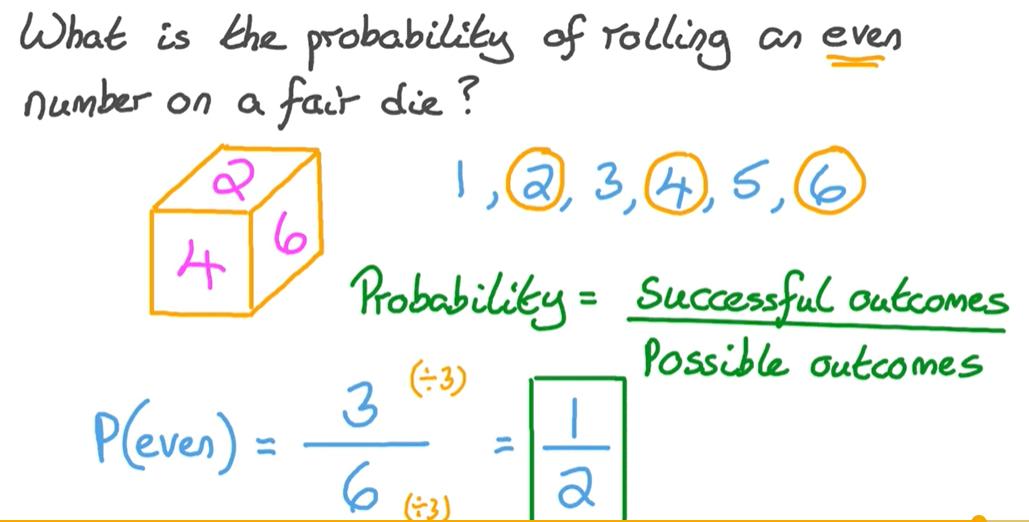 What is the probability of rolling an even
number on a fair die?
2
4
6
1, 2, 3, 4, 5, 6
Probability = Successful outcomes
Possible outcomes
P(even) = 3 (÷3) = 1
6 (÷3) 2